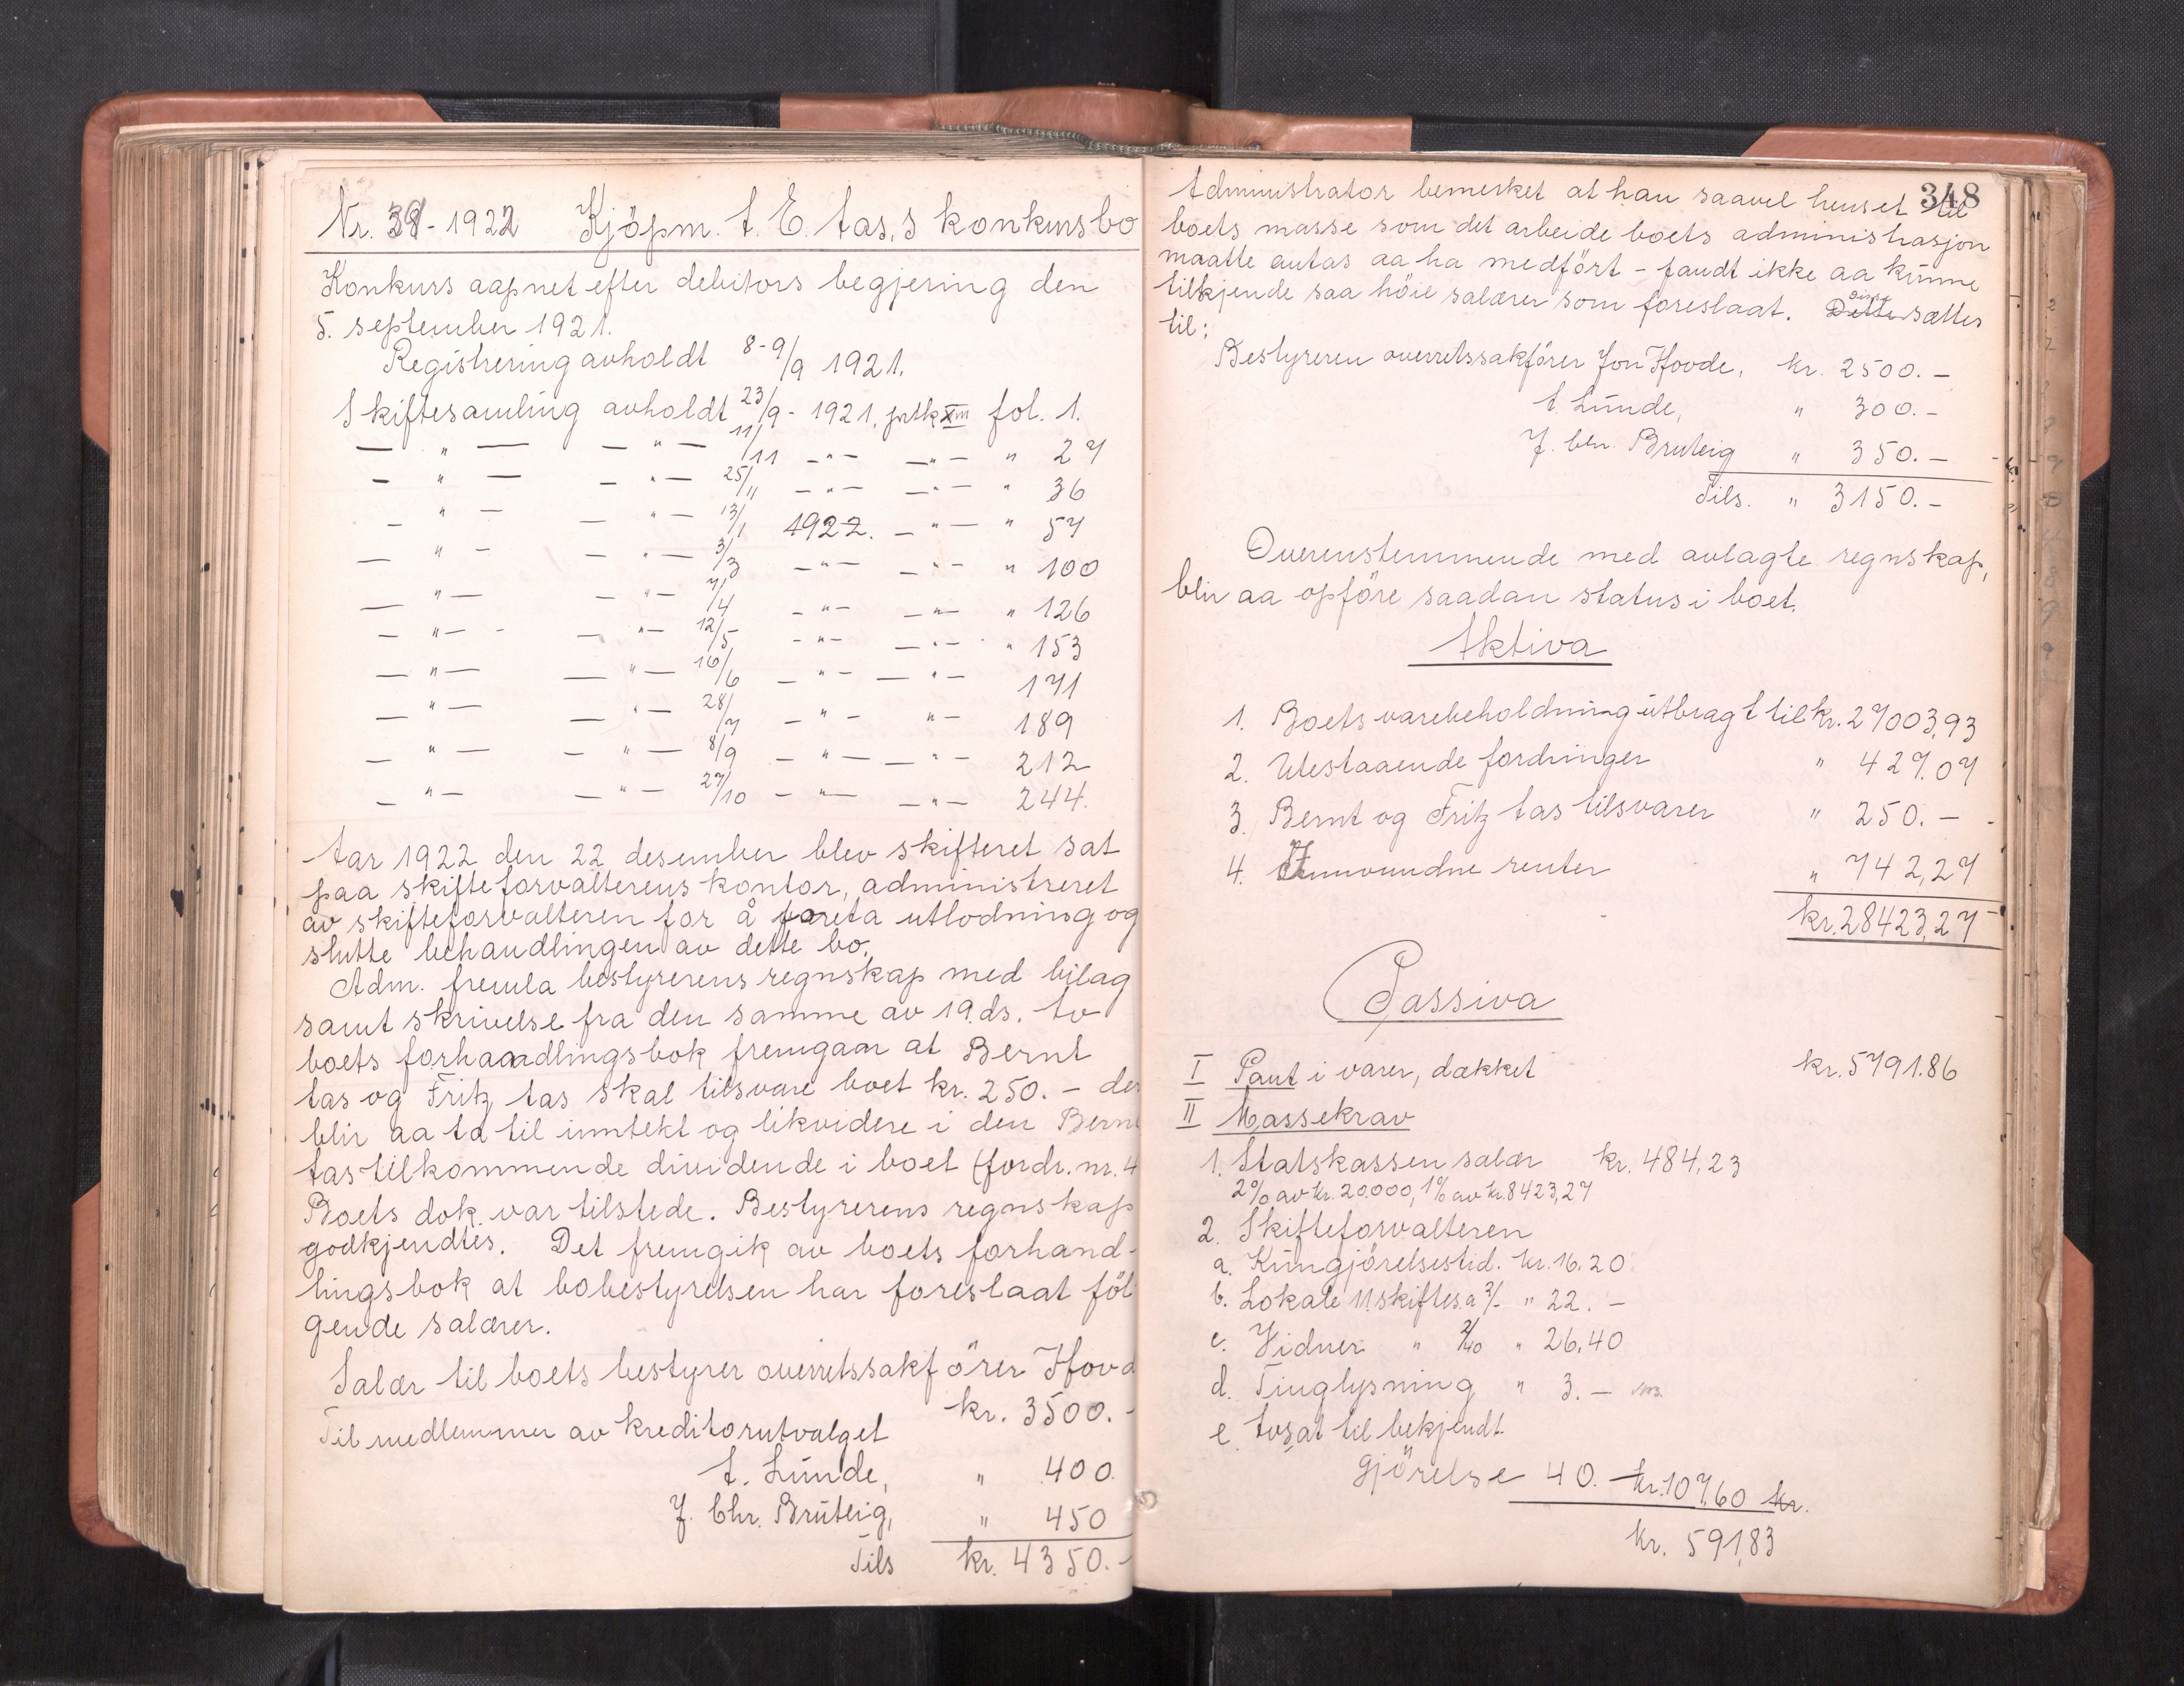 Nr. 38 - 1922 Kjöpm. A. E. Aas, s konkursbo
Konkurs aapnet efter debitors begjering den
5. september 1921.
Registrering avholdt 8-9/9 1921.
Skiftesamling avholdt 23/9 - 1921, prtk XIII fol. 1.
— " — — " — 11/11 — " — — " — " 27
— " — — " — 25/11 — " — — " — " 36
— " — — " — 13/1 1922. — " — " 57
— " — — " — 3/3 — " — — " — " 100
— " — — " — 7/4 — " — — " — " 126
— " — — " — 12/5 — " — — " — " 153
— " — — " — 16/6 — " — — " — 171
— " — — " — 28/7 — " — " — 189
— " — — " — 8/9 — " — — " — 212
— " — — " — 27/10 — " — — " — 244.
Aar 1922 den 22 desember blev skifteret sat
paa skifteforvalterens kontor, administreret
av skifteforvalteren for å foreta utlodning og
slutte behandlingen av dette bo.
Adm. fremla bestyrerens regnskap med bilag
samt skrivelse fra den samme av 19. ds. Av
boets forhaandlingsbok fremgaar at Bernt
Aas og Fritz Aas skal tilsvare boet kr. 250. - der
blir aa ta til inntekt og likvidere i den Bernt
Aas tilkommende dividende i boet (fordr. nr. 4
Boets dok. var tilstede. Bestyrerens regnskap
godkjendtes. Det fremgik av boets forhand-
lingsbok at bobestyrelsen har foreslaat föl-
gende salærer.
Salær til boets bestyrer overretssakförer Hovd
kr. 3500. -
Til medlemmer av kreditorutvalget
A. Lunde, " 400.
J. Chr. Bruteig, " 450
Tils kr. 4350. -
348
Administrator bemerket at han saavel henset til
boets masse som det arbeide boets administrasjon
maatte antas aa ha medfört - fandt ikke aa kunne
tilkjende saa höie salærer som foreslaat. Dette disse sættes
til:
Bestyreren overretssakförer Jon Hovde, kr. 2500. -
A. Lunde, " 300. -
J. Chr. Bruteig " 350. -
Tils. " 3150. -
Overenstemmende med avlagte regnskap,
blir aa opföre saadan status i boet.
Aktiva
1. Boets varebeholdning utbragt til kr. 27003,93
2. Utestaaende fordringer " 427.07
3. Bernt og Fritz Aas tilsvarer " 250. -
4. Innvundne renter " 742,27
kr. 28423,27
Passiva
I Pant i varer, dækket kr. 5791.86
II Massekrav
1. Statskassen salær kr. 484,23
2% av kr. 20.000, 1% av kr. 8423,27
2. Skifteforvalteren
a. Kungjörelsestid. kr. 16.20
b. Lokale 11 skiftes. a 2/- " 22. -
c. Vidner " 2/40 " 26,40
d. Tinglysning " 3. -
e. Avsat til bekjendt-
gjörelse 40. - kr. 107,60 kr.
kr. 591,83